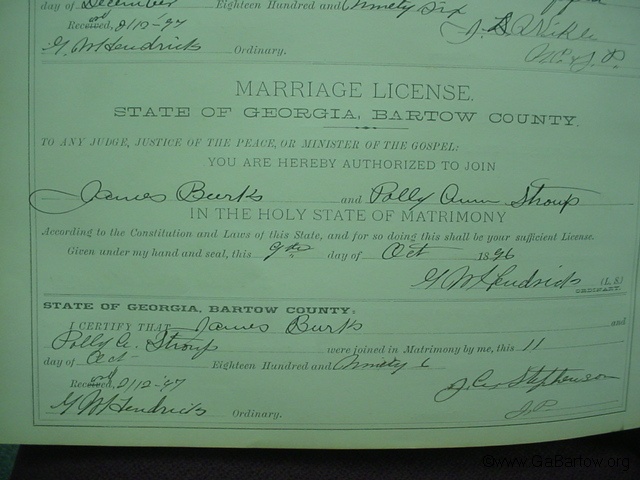 day of December Eighteen Hundred and Ninety Six
Received, 2/12-97
G. W. Hendricks Ordinary.
MARRIAGE LICENSE.
STATE OF GEORGIA, BARTOW COUNTY.
TO ANY JUDGE, JUSTICE OF THE PEACE, OR MINISTER OF THE GOSPEL:
YOU ARE HEREBY AUTHORIZED TO JOIN
James Burks and Polly Ann Stroup
IN THE HOLY STATE OF MATRIMONY
According to the Constitution and Laws of this State, and for so doing this shall be your sufficient License.
Given under my hand and seal, this 9th day of Oct 1896
G W Hendricks (L. S.)
ORDINARY.
STATE OF GEORGIA, BARTOW COUNTY:
I CERTIFY THAT James Burks and
Polly A. Stroup were joined in Matrimony by me, this 11
day of Oct Eighteen Hundred and Ninety 6
Received, 2/12-97 Stephenson
G W Hendricks Ordinary. J.P.
©www.GaBartow.org